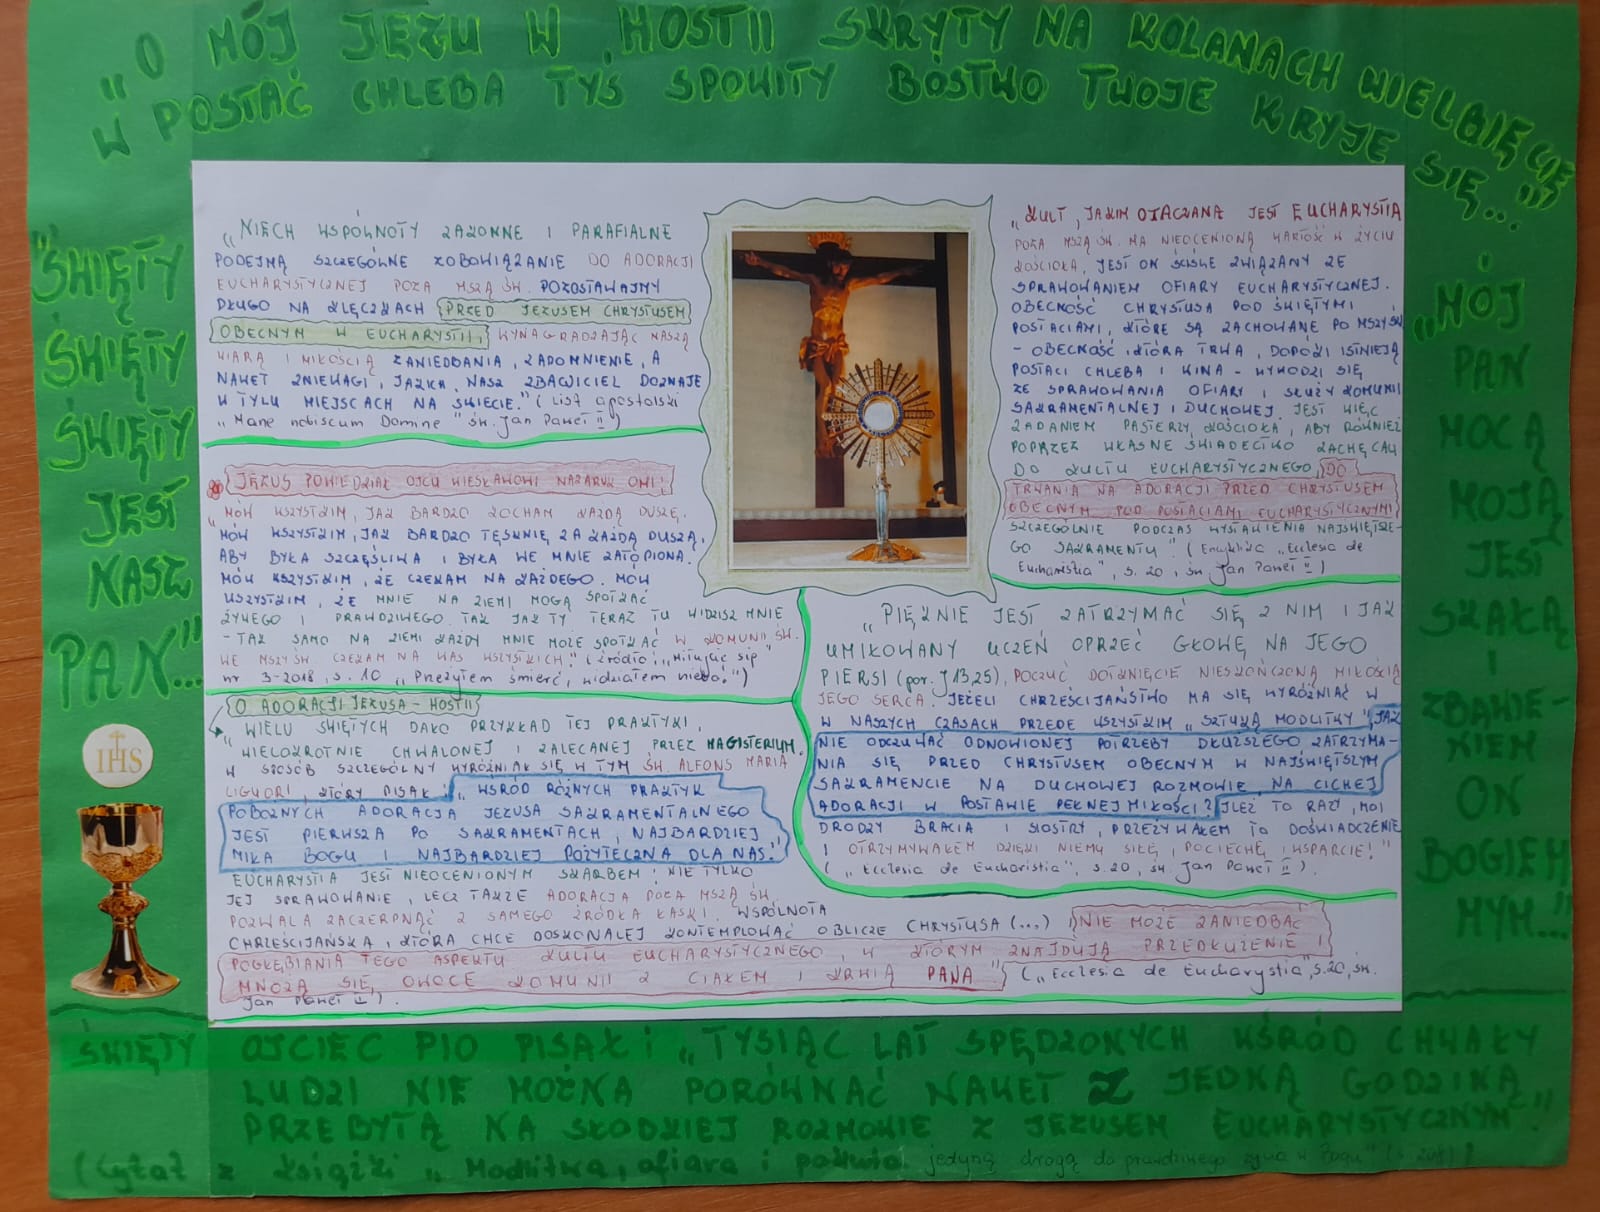 „O MÓJ JEZU W HOSTII SKRYTY NA KOLANACH WIELBIĘ CIĘ
W POSTAĆ CHLEBA TYŚ SPOWITY BÓSTWO TWOJE KRYJE SIĘ..."
"ŚWIĘTY
ŚWIĘTY
ŚWIĘTY
JEST
NASZ
PAN"...
IHS
„NIECH WSPÓLNOTY ZAKONNE I PARAFIALNE
PODEJMĄ SZCZEGÓLNE ZOBOWIĄZANIE DO ADORACJI
EUCHARYSTYCZNEJ POZA MSZĄ ŚW. POZOSTAWAJMY
DŁUGO NA KLĘCZKACH PRZED JEZUSEM CHRYSTUSEM
OBECNYM W EUCHARYSTII, WYNAGRADZAJĄC NASZĄ
WIARĄ I MIŁOŚCIĄ ZANIEDBANIA, ZAPOMNIENIE, A
NAWET ZNIEWAGI, JAKICH NASZ ZBAWICIEL DOZNAJE
W TYLU MIEJSCACH NA ŚWIECIE." (List apostolski
„Mane nobiscum Domine" św. Jan Paweł II)
JEZUS POWIEDZIAŁ OJCU WIESŁAWOWI NAZARUK OMI:
„MÓW WSZYSTKIM, JAK BARDZO KOCHAM KAŻDĄ DUSZĘ.
MÓW WSZYSTKIM, JAK BARDZO TĘSKNIĘ ZA KAŻDĄ DUSZĄ,
ABY BYŁA SZCZĘŚLIWA I BYŁA WE MNIE ZATOPIONA.
MÓW WSZYSTKIM, ŻE CZEKAM NA KAŻDEGO. MÓW
WSZYSTKIM, ŻE MNIE NA ZIEMI MOGĄ SPOTKAĆ
ŻYWEGO I PRAWDZIWEGO. TAK JAK TY TERAZ TU WIDZISZ MNIE
- TAK SAMO NA ZIEMI KAŻDY MNIE MOŻE SPOTKAĆ W KOMUNII ŚW.
WE MSZY ŚW. CZEKAM NA WAS WSZYSTKICH" (źródło: „Miłujcie się"
nr 3-2018, s. 10 „Przeżyłem śmierć, widziałem niebo.")
O ADORACJI JEZUSA - HOSTII
„WIELU ŚWIĘTYCH DAŁO PRZYKŁAD TEJ PRAKTYKI,
WIELOKROTNIE CHWALONEJ I ZALECANEJ PRZEZ MAGISTERIUM.
W SPOSÓB SZCZEGÓLNY WYRÓŻNIAŁ SIĘ W TYM ŚW. ALFONS MARIA
LIGUORI, KTÓRY PISAŁ: „WŚRÓD RÓŻNYCH PRAKTYK
POBOŻNYCH ADORACJA JEZUSA SAKRAMENTALNEGO
JEST PIERWSZA PO SAKRAMENTACH, NAJBARDZIEJ
MIŁA BOGU I NAJBARDZIEJ POŻYTECZNA DLA NAS."
EUCHARYSTIA JEST NIEOCENIONYM SKARBEM: NIE TYLKO
JEJ SPRAWOWANIE, LECZ TAKŻE ADORACJA POZA MSZĄ ŚW.
POZWALA ZACZERPNĄĆ Z SAMEGO ŹRÓDŁA ŁASKI. WSPÓLNOTA
CHRZEŚCIJAŃSKA, KTÓRA CHCE DOSKONALEJ KONTEMPLOWAĆ OBLICZE CHRYSTUSA (...) NIE MOŻE ZANIEDBAĆ
POGŁĘBIANIA TEGO ASPEKTU KULTU EUCHARYSTYCZNEGO, W KTÓRYM ZNAJDUJĄ PRZEDŁUŻENIE I
MNOŻĄ SIĘ OWOCE KOMUNII Z CIAŁEM I KRWIĄ PANA" („Ecclesia de Eucharystia", s. 20, św.
Jan Paweł II).
„KULT, JAKIM OTACZANA JEST EUCHARYSTIA
POZA MSZĄ ŚW. MA NIEOCENIONĄ WARTOŚĆ W ŻYCIU
KOŚCIOŁA, JEST ON ŚCIŚLE ZWIĄZANY ZE
SPRAWOWANIEM OFIARY EUCHARYSTYCZNEJ.
OBECNOŚĆ CHRYSTUSA POD ŚWIĘTYMI
POSTACIAMI, KTÓRE SĄ ZACHOWANE PO MSZY ŚW
- OBECNOŚĆ, KTÓRA TRWA, DOPÓKI ISTNIEJĄ
POSTACI CHLEBA I WINA - WYWODZI SIĘ
ZE SPRAWOWANIA OFIARY I SŁUŻY KOMUNII
SAKRAMENTALNEJ I DUCHOWEJ. JEST WIĘC
ZADANIEM PASTERZY KOŚCIOŁA, ABY RÓWNIEŻ
POPRZEZ WŁASNE ŚWIADECTWO ZACHĘCALI
DO KULTU EUCHARYSTYCZNEGO, DO
TRWANIA NA ADORACJI PRZED CHRYSTUSEM
OBECNYM POD POSTACIAMI EUCHARYSTYCZNYMI
SZCZEGÓLNIE PODCZAS WYSTAWIENIA NAJŚWIĘTSZE-
GO SAKRAMENTU." (Encyklika „Ecclesia de
Eucharistia", s. 20, św. Jan Paweł II)
„PIĘKNIE JEST ZATRZYMAĆ SIĘ Z NIM I JAK
UMIŁOWANY UCZEŃ OPRZEĆ GŁOWĘ NA JEGO
PIERSI (por. J 13,25), POCZUĆ DOTKNIĘCIE NIESKOŃCZONĄ MIŁOŚCIĄ
JEGO SERCA. JEŻELI CHRZEŚCIJAŃSTWO MA SIĘ WYRÓŻNIAĆ W
W NASZYCH CZASACH PRZEDE WSZYSTKIM „SZTUKĄ MODLITWY" JAK
NIE ODCZUWAĆ ODNOWIONEJ POTRZEBY DŁUŻSZEGO ZATRZYMA-
NIA SIĘ PRZED CHRYSTUSEM OBECNYM W NAJŚWIĘTSZYM
SAKRAMENCIE NA DUCHOWEJ ROZMOWIE, NA CICHEJ
ADORACJI W POSTAWIE PEŁNEJ MIŁOŚCI? ILEŻ TO RAZY, MOI
DRODZY BRACIA I SIOSTRY, PRZEŻYWAŁEM TO DOŚWIADCZENIE
I OTRZYMYWAŁEM DZIĘKI NIEMU SIŁĘ, POCIECHĘ I WSPARCIE!"
(„Ecclesia de Eucharistia", s. 20, św. Jan Paweł II).
„MÓJ
PAN
MOCĄ
MOJĄ
JEST
SKAŁĄ
I
ZBAWIE-
NIEM
ON
BOGIEM
MYM..."
ŚWIĘTY OJCIEC PIO PISAŁ: „TYSIĄC LAT SPĘDZONYCH WŚRÓD CHWAŁY
LUDZI NIE MOŻNA PORÓWNAĆ NAWET Z JEDNĄ GODZINĄ
PRZEBYTĄ NA SŁODKIEJ ROZMOWIE Z JEZUSEM EUCHARYSTYCZNYM".
(Cytat z książki „Modlitwa, ofiara i pokuta jedyną drogą do prawdziwego życia w Bogu" (s. 208))